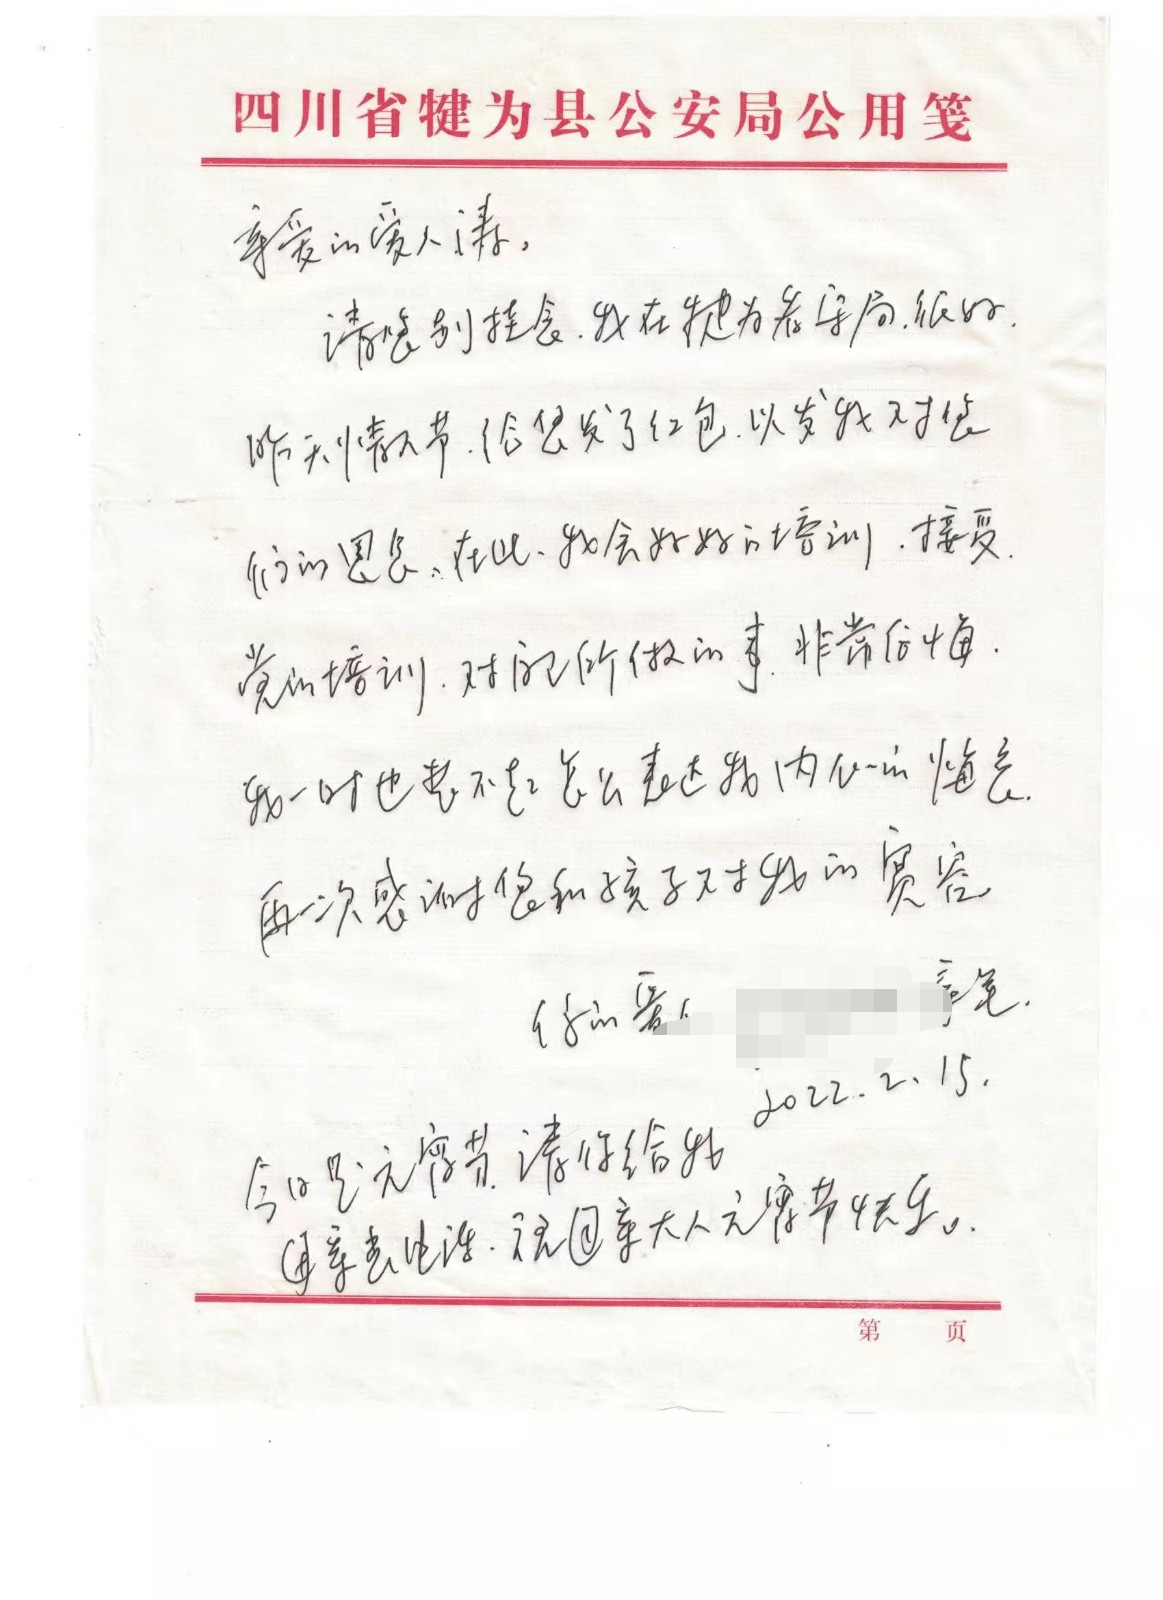 四川省犍为县公安局公用笺
亲爱的爱人涛。
请您别挂念.我在犍为看守局.很好.
昨天情人节.给您发了红包.以发我对您
们的思念.在此.我会好好的培训.接受
党的培训.对自己所做的事.非常后悔.
我一时也想不起怎么表达我内心的悔意.
再一次感谢您和孩子对我的宽容
你的爱人 亲笔.
2022.2.15.
今日是元宵节.请你给我
母亲去电话.祝母亲大人元宵节快乐。
第 页